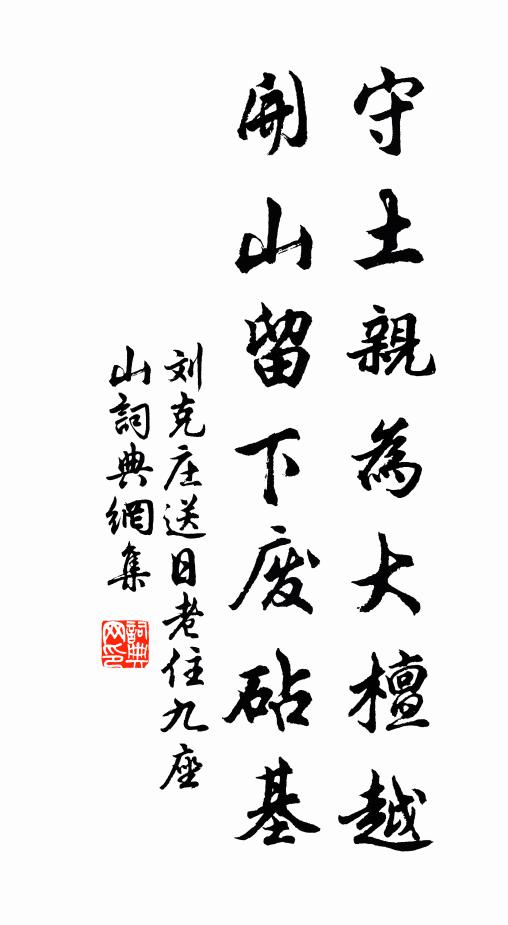 守土親為大檀越
開山留下废砧基
刘克庄送日老住九座
山詞典網集
詞典网印